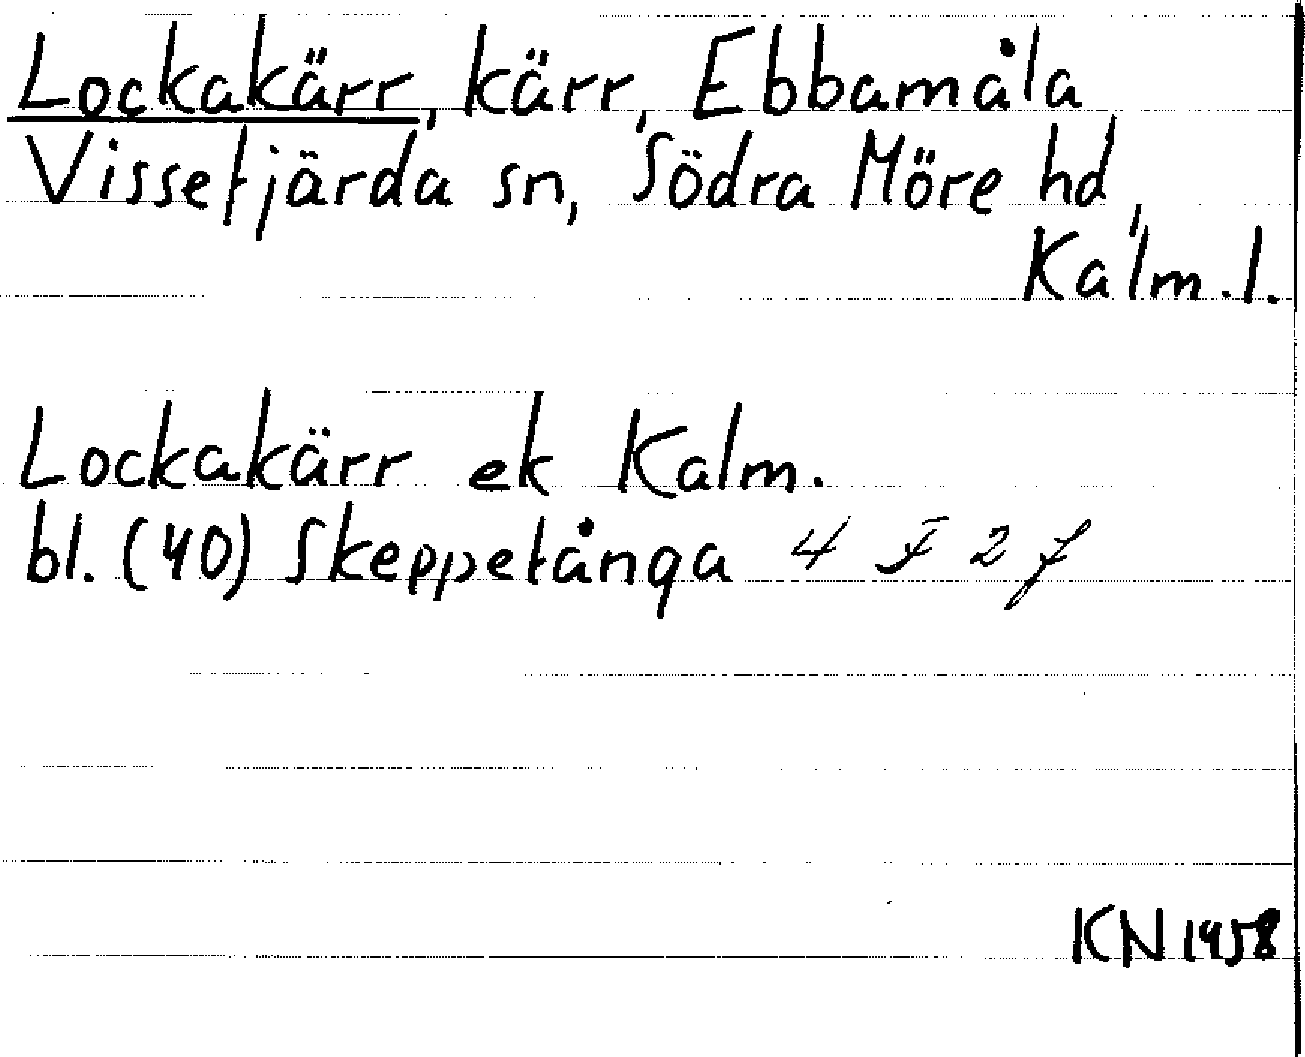 Lockakärr, kärr, Ebbamåla
Vissefjärda sn, Södra Möre hd,
Kalm. l.
Lockakärr ek Kalm.
bl. (40) Skeppetånga 4 F 2 f
KN 1958